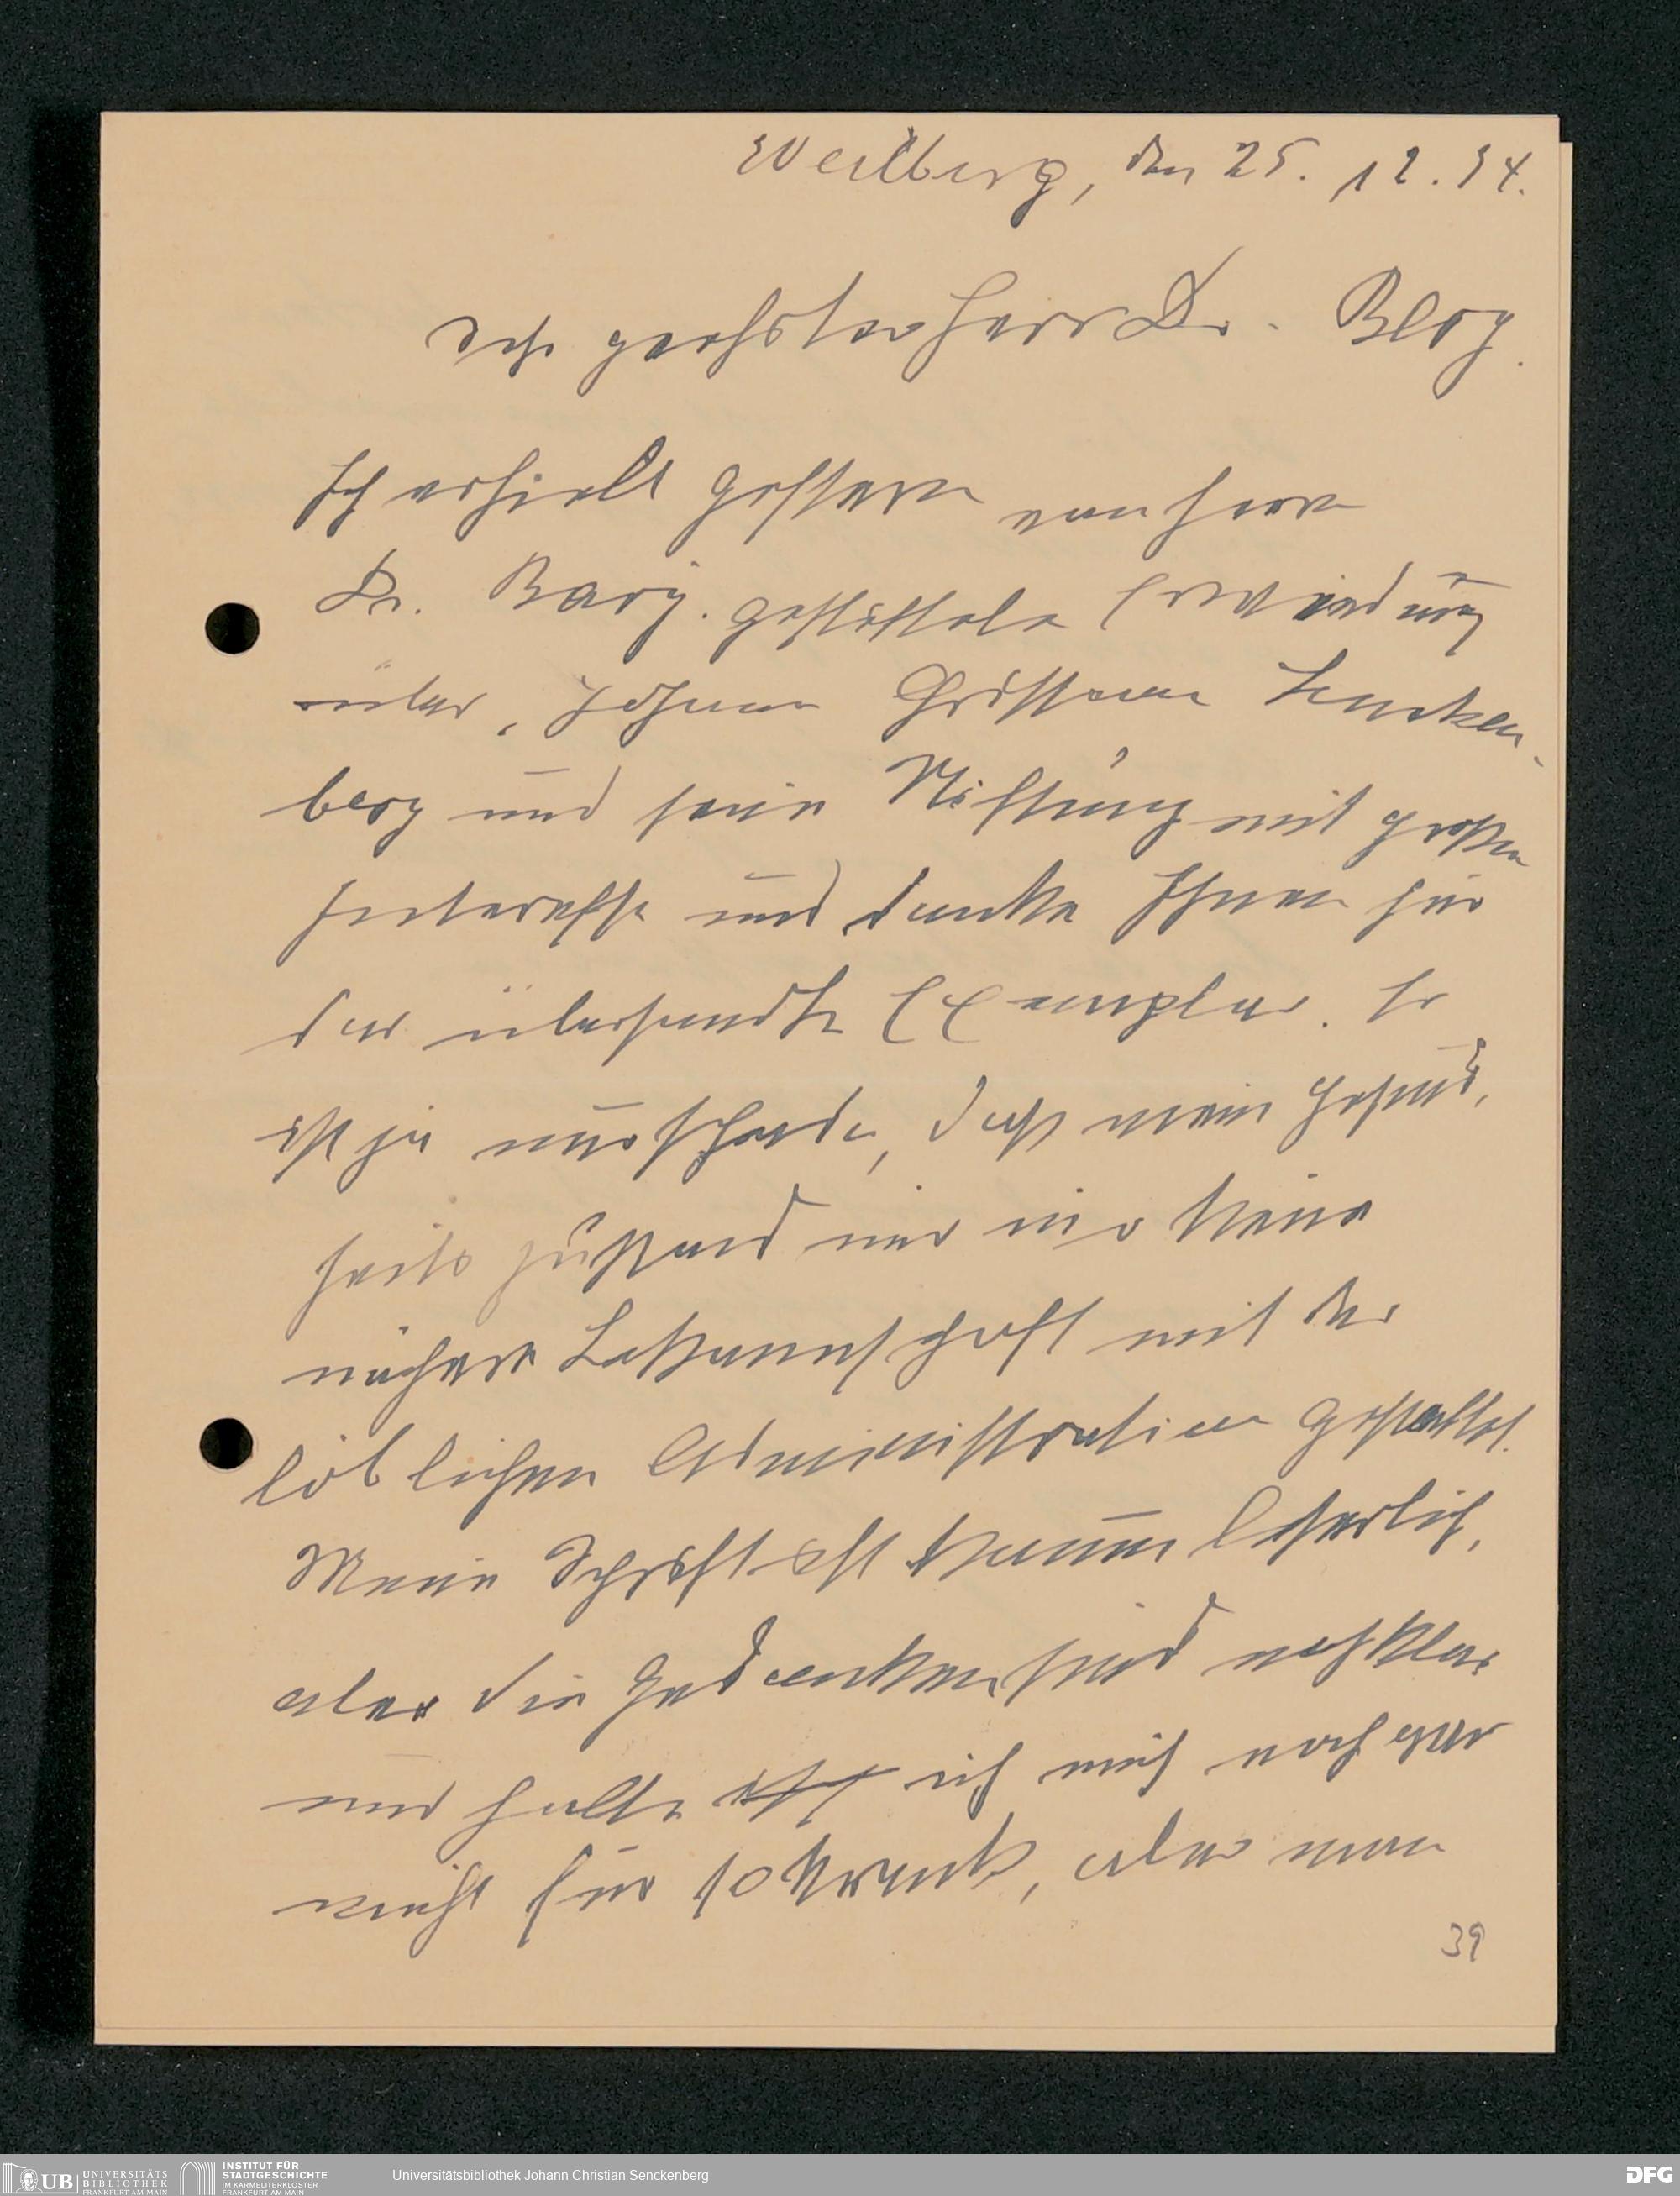 Weilberg, den 25. 12. 34.
Sehr geehrter Herr Dr. Bloz.
Ich erhielt gestern von Herrn
Dr. Barj.
über "Johann Christian Sencken-
berg und seine Stiftung mit großem
Interesse und danke Ihnen für
das übersandte Exemplar. Es
ist ja nur schade, daß mein Gesund,
heits zustand mir nie keine
nähere Bekanntschaft mit der
löblichen Administration gestattet.
Meine Schrift ist kaum leserlich,
aber die Gedanken sind noch klar
und halte ich mich noch gar
nicht für so krank, aber man
39
UB UNIVERSITÄTS
BIBLIOTHEK
FRANKFURT AM MAIN
INSTITUT FÜR
STADTGESCHICHTE
IM KARMELITERKLOSTER
FRANKFURT AM MAIN
Universitätsbibliothek Johann Christian Senckenberg
DFG